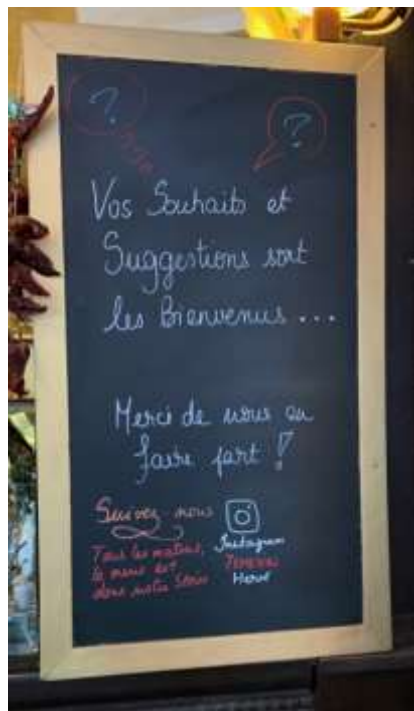 ? ?
Vos Souhaits et
Suggestions sont
les Bienvenus ...
Merci de nous en
faire part !
Suivez nous
Instagram
Tous les matins,
le menu est
dans notre Story
Hervé